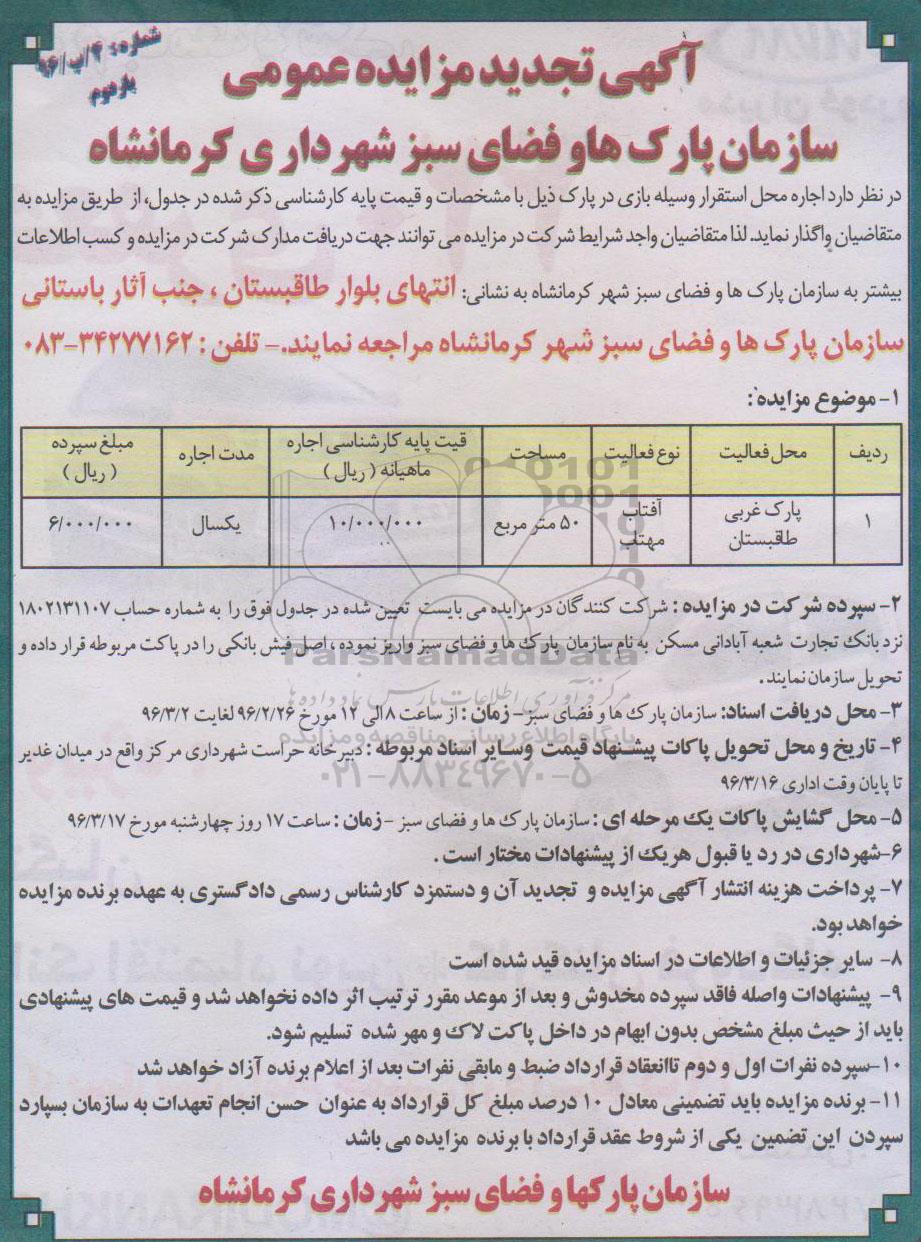 شماره: ۴/پ/۹۶
بار دوم
آگهی تجدید مزایده عمومی
سازمان پارک هاو فضای سبز شهرداری کرمانشاه
در نظر دارد اجاره محل استقرار وسیله بازی در پارک ذیل با مشخصات و قیمت پایه کارشناسی ذکر شده در جدول، از طریق مزایده به
متقاضیان واگذار نماید. لذا متقاضیان واجد شرایط شرکت در مزایده می توانند جهت دریافت مدارک شرکت در مزایده و کسب اطلاعات
بیشتر به سازمان پارک ها و فضای سبز شهر کرمانشاه به نشانی: انتهای بلوار طاقبستان ، جنب آثار باستانی
سازمان پارک ها و فضای سبز شهر کرمانشاه مراجعه نمایند.- تلفن : ۳۴۲۷۷۱۶۲-۰۸۳
۱- موضوع مزایده:
ردیف محل فعالیت نوع فعالیت مساحت قیت پایه کارشناسی اجاره ماهیانه ( ریال ) مدت اجاره مبلغ سپرده ( ریال )
۱ پارک غربی طاقبستان آفتاب مهتاب ۵۰ متر مربع ۱۰/۰۰۰/۰۰۰ یکسال ۶/۰۰۰/۰۰۰
۲- سپرده شرکت در مزایده : شرکت کنندگان در مزایده می بایست تعیین شده در جدول فوق را به شماره حساب ۱۸۰۲۱۳۱۱۰۷
نزد بانک تجارت شعبه آبادانی مسکن به نام سازمان پارک ها و فضای سبز واریز نموده ، اصل فیش بانکی را در پاکت مربوطه قرار داده و
تحویل سازمان نمایند .
ParsNamadData
مرکز فرآوری اطلاعات پارس نماد داده ها
۳- محل دریافت اسناد: سازمان پارک ها و فضای سبز- زمان : از ساعت ۸ الی ۱۲ مورخ ۹۶/۲/۲۶ لغایت ۹۶/۳/۲
پایگاه اطلاع رسانی مناقصه و مزایده
۴- تاریخ و محل تحویل پاکات پیشنهاد قیمت وسایر اسناد مربوطه : دبیرخانه حراست شهرداری مرکز واقع در میدان غدیر
تا پایان وقت اداری ۹۶/۳/۱۶
۰۲۱-۸۸۳۴۹۶۷۰-۵
۵- محل گشایش پاکات یک مرحله ای : سازمان پارک ها و فضای سبز - زمان : ساعت ۱۷ روز چهارشنبه مورخ ۹۶/۳/۱۷
۶-شهرداری در رد یا قبول هریک از پیشنهادات مختار است .
۷- پرداخت هزینه انتشار آگهی مزایده و تجدید آن و دستمزد کارشناس رسمی دادگستری به عهده برنده مزایده
خواهد بود.
۸- سایر جزئیات و اطلاعات در اسناد مزایده قید شده است
۹- پیشنهادات واصله فاقد سپرده مخدوش و بعد از موعد مقرر ترتیب اثر داده نخواهد شد و قیمت های پیشنهادی
باید از حیث مبلغ مشخص بدون ابهام در داخل پاکت لاک و مهر شده تسلیم شود.
۱۰-سپرده نفرات اول و دوم تاانعقاد قرارداد ضبط و مابقی نفرات بعد از اعلام برنده آزاد خواهد شد
۱۱- برنده مزایده باید تضمینی معادل ۱۰ درصد مبلغ کل قرارداد به عنوان حسن انجام تعهدات به سازمان بسپارد
سپردن این تضمین یکی از شروط عقد قرارداد با برنده مزایده می باشد
سازمان پارکها و فضای سبز شهرداری کرمانشاه